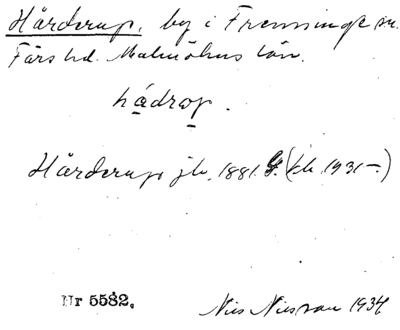 Hårderup, by i Frenninge sn.
Färs hd. Malmöhus län.
hådrop.
Hårderup jb. 1881. G. (kk 1931–.)
Nr 5582.
Nils Nilsson 1934